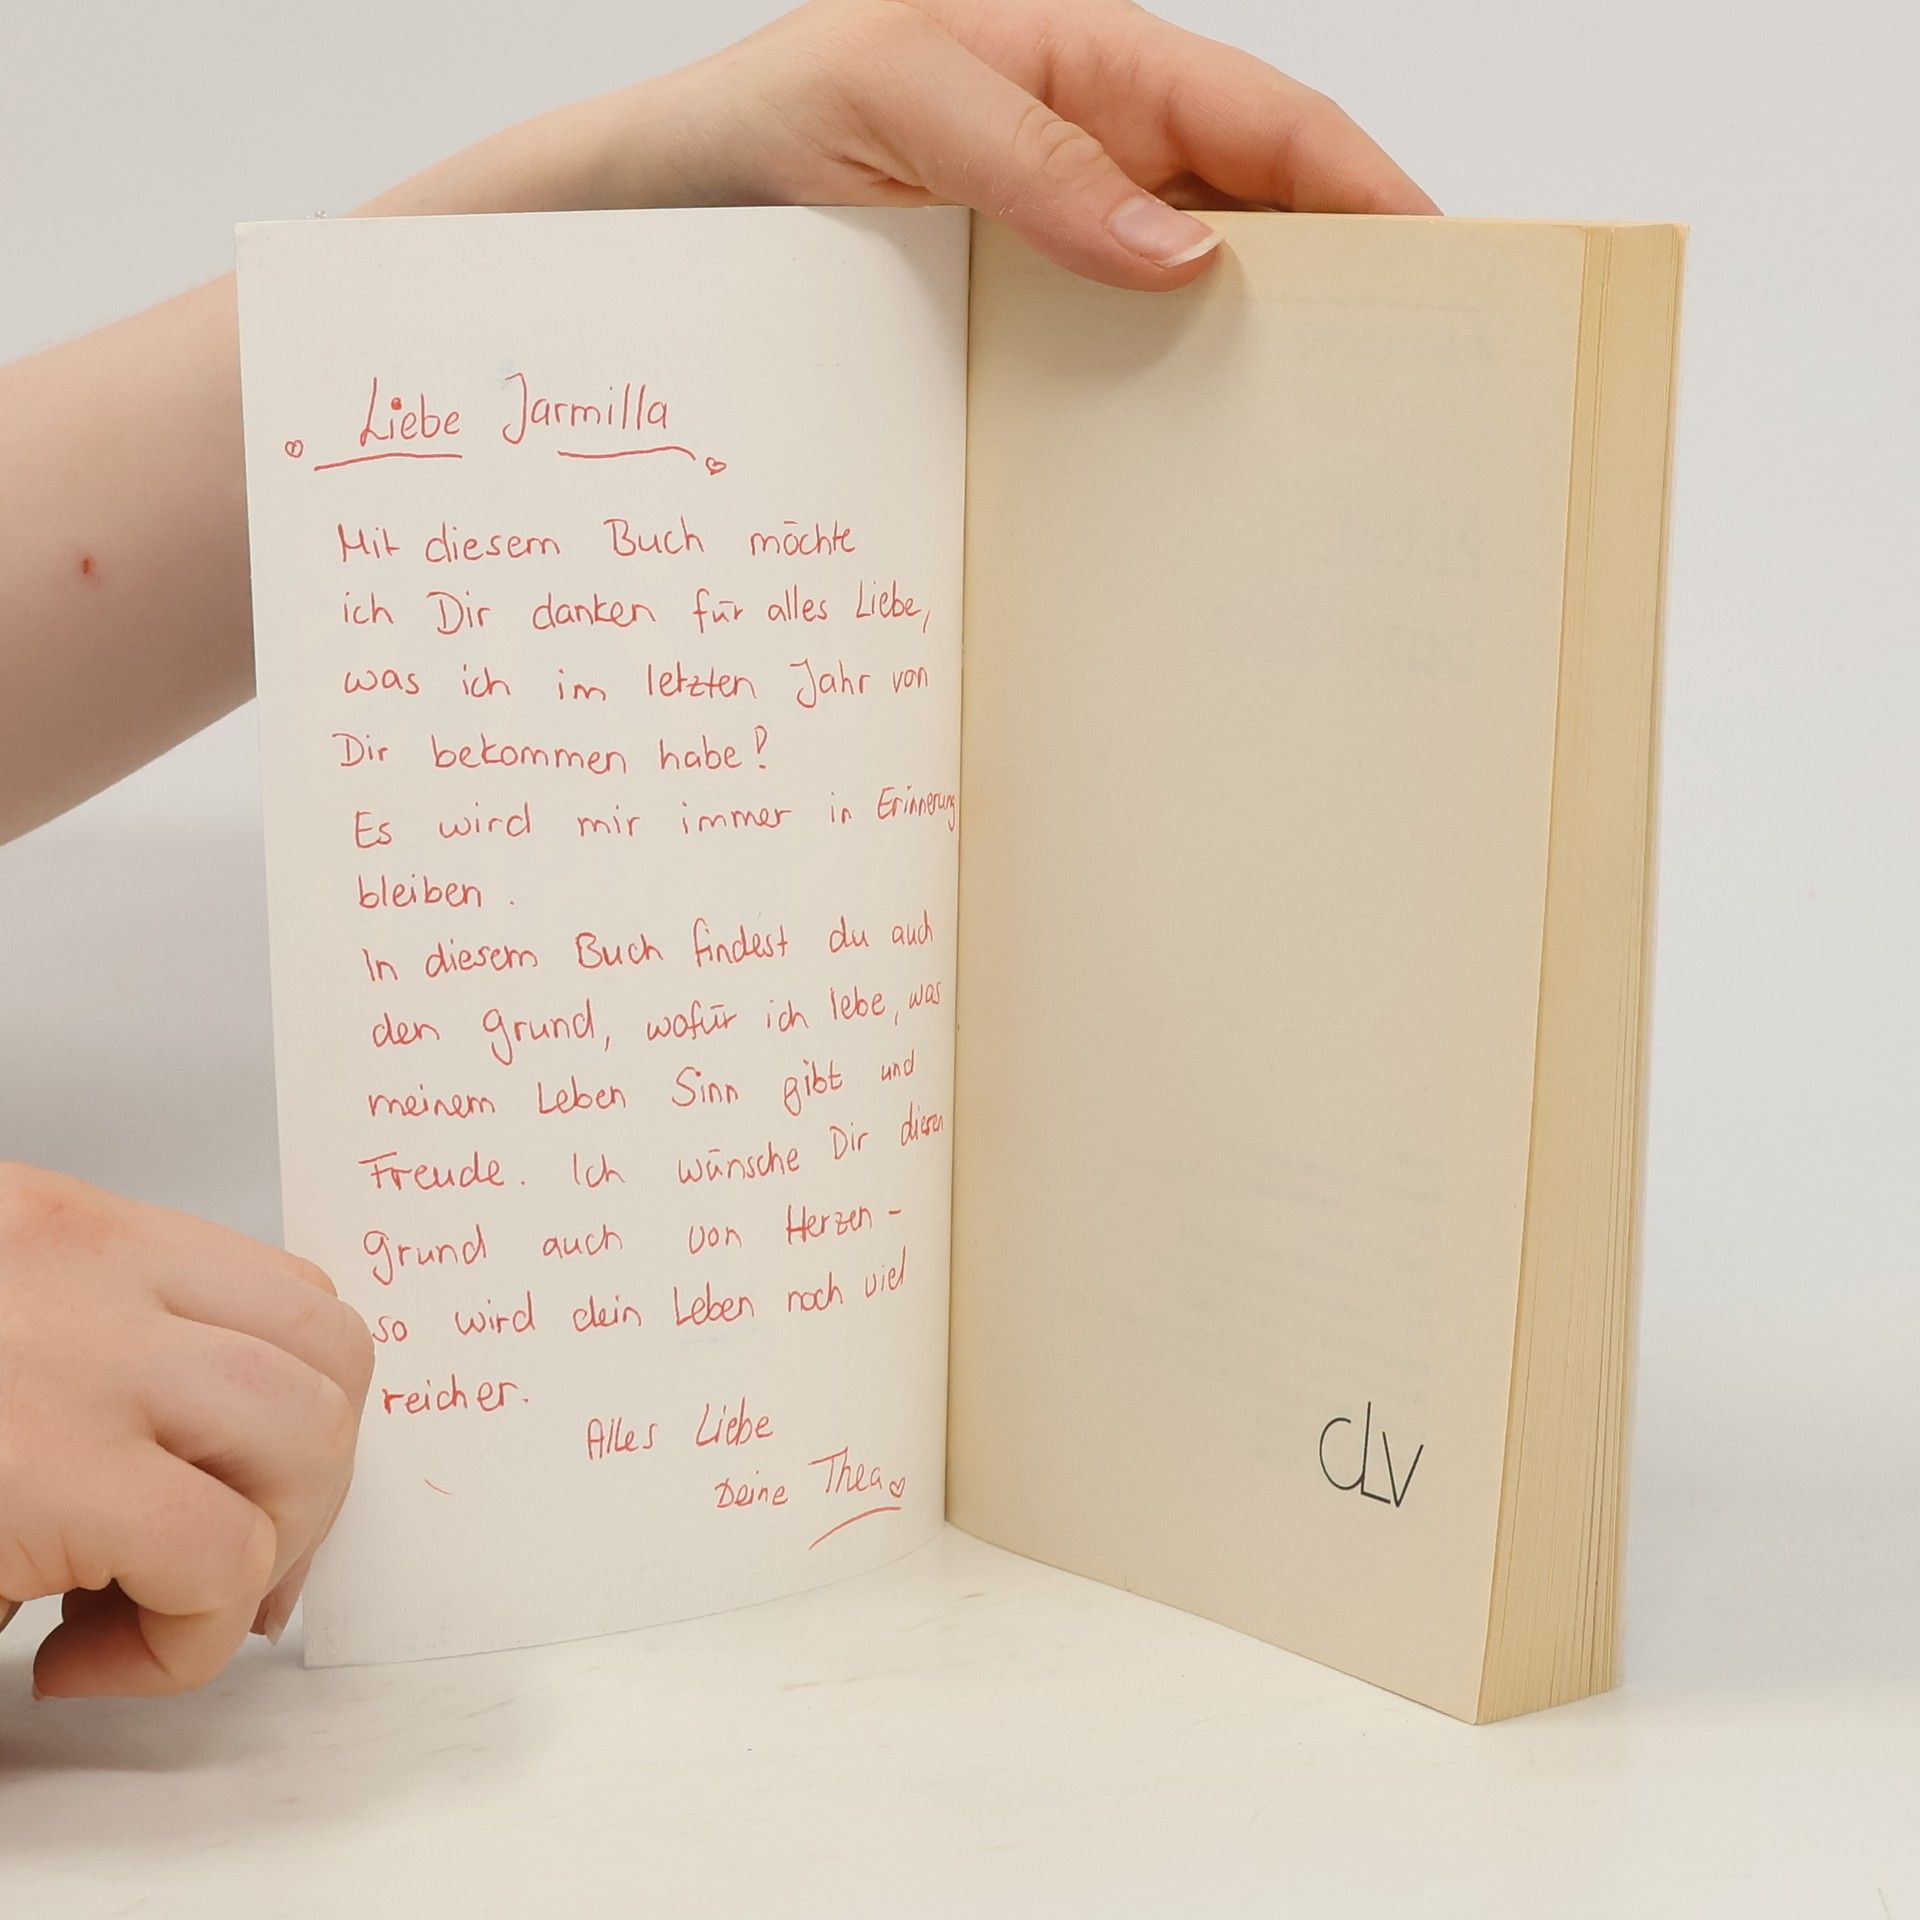 Liebe Jarmilla
Mit diesem Buch möchte
ich Dir danken für alles Liebe,
was ich im letzten Jahr von
Dir bekommen habe!
Es wird mir immer in Erinnerung
bleiben.
In diesem Buch findest du auch
den Grund, wofür ich lebe, was
meinem Leben Sinn gibt und
Freude. Ich wünsche Dir diesen
Grund auch von Herzen -
so wird dein Leben noch viel
reicher.
Alles Liebe
Deine Thea
clv